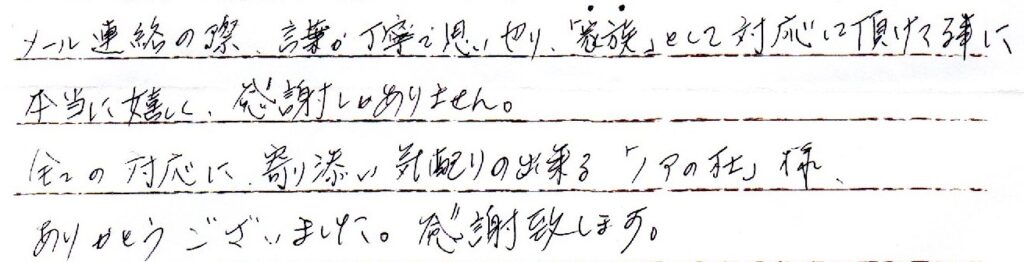 メール連絡の際、言葉が丁寧で思いやり、「家族」として対応して頂けてる事に
本当に嬉しく、感謝しかありません。
全ての対応に、寄り添い気配りの出来る「ノアの杜」様、
ありがとうございました。感謝致します。